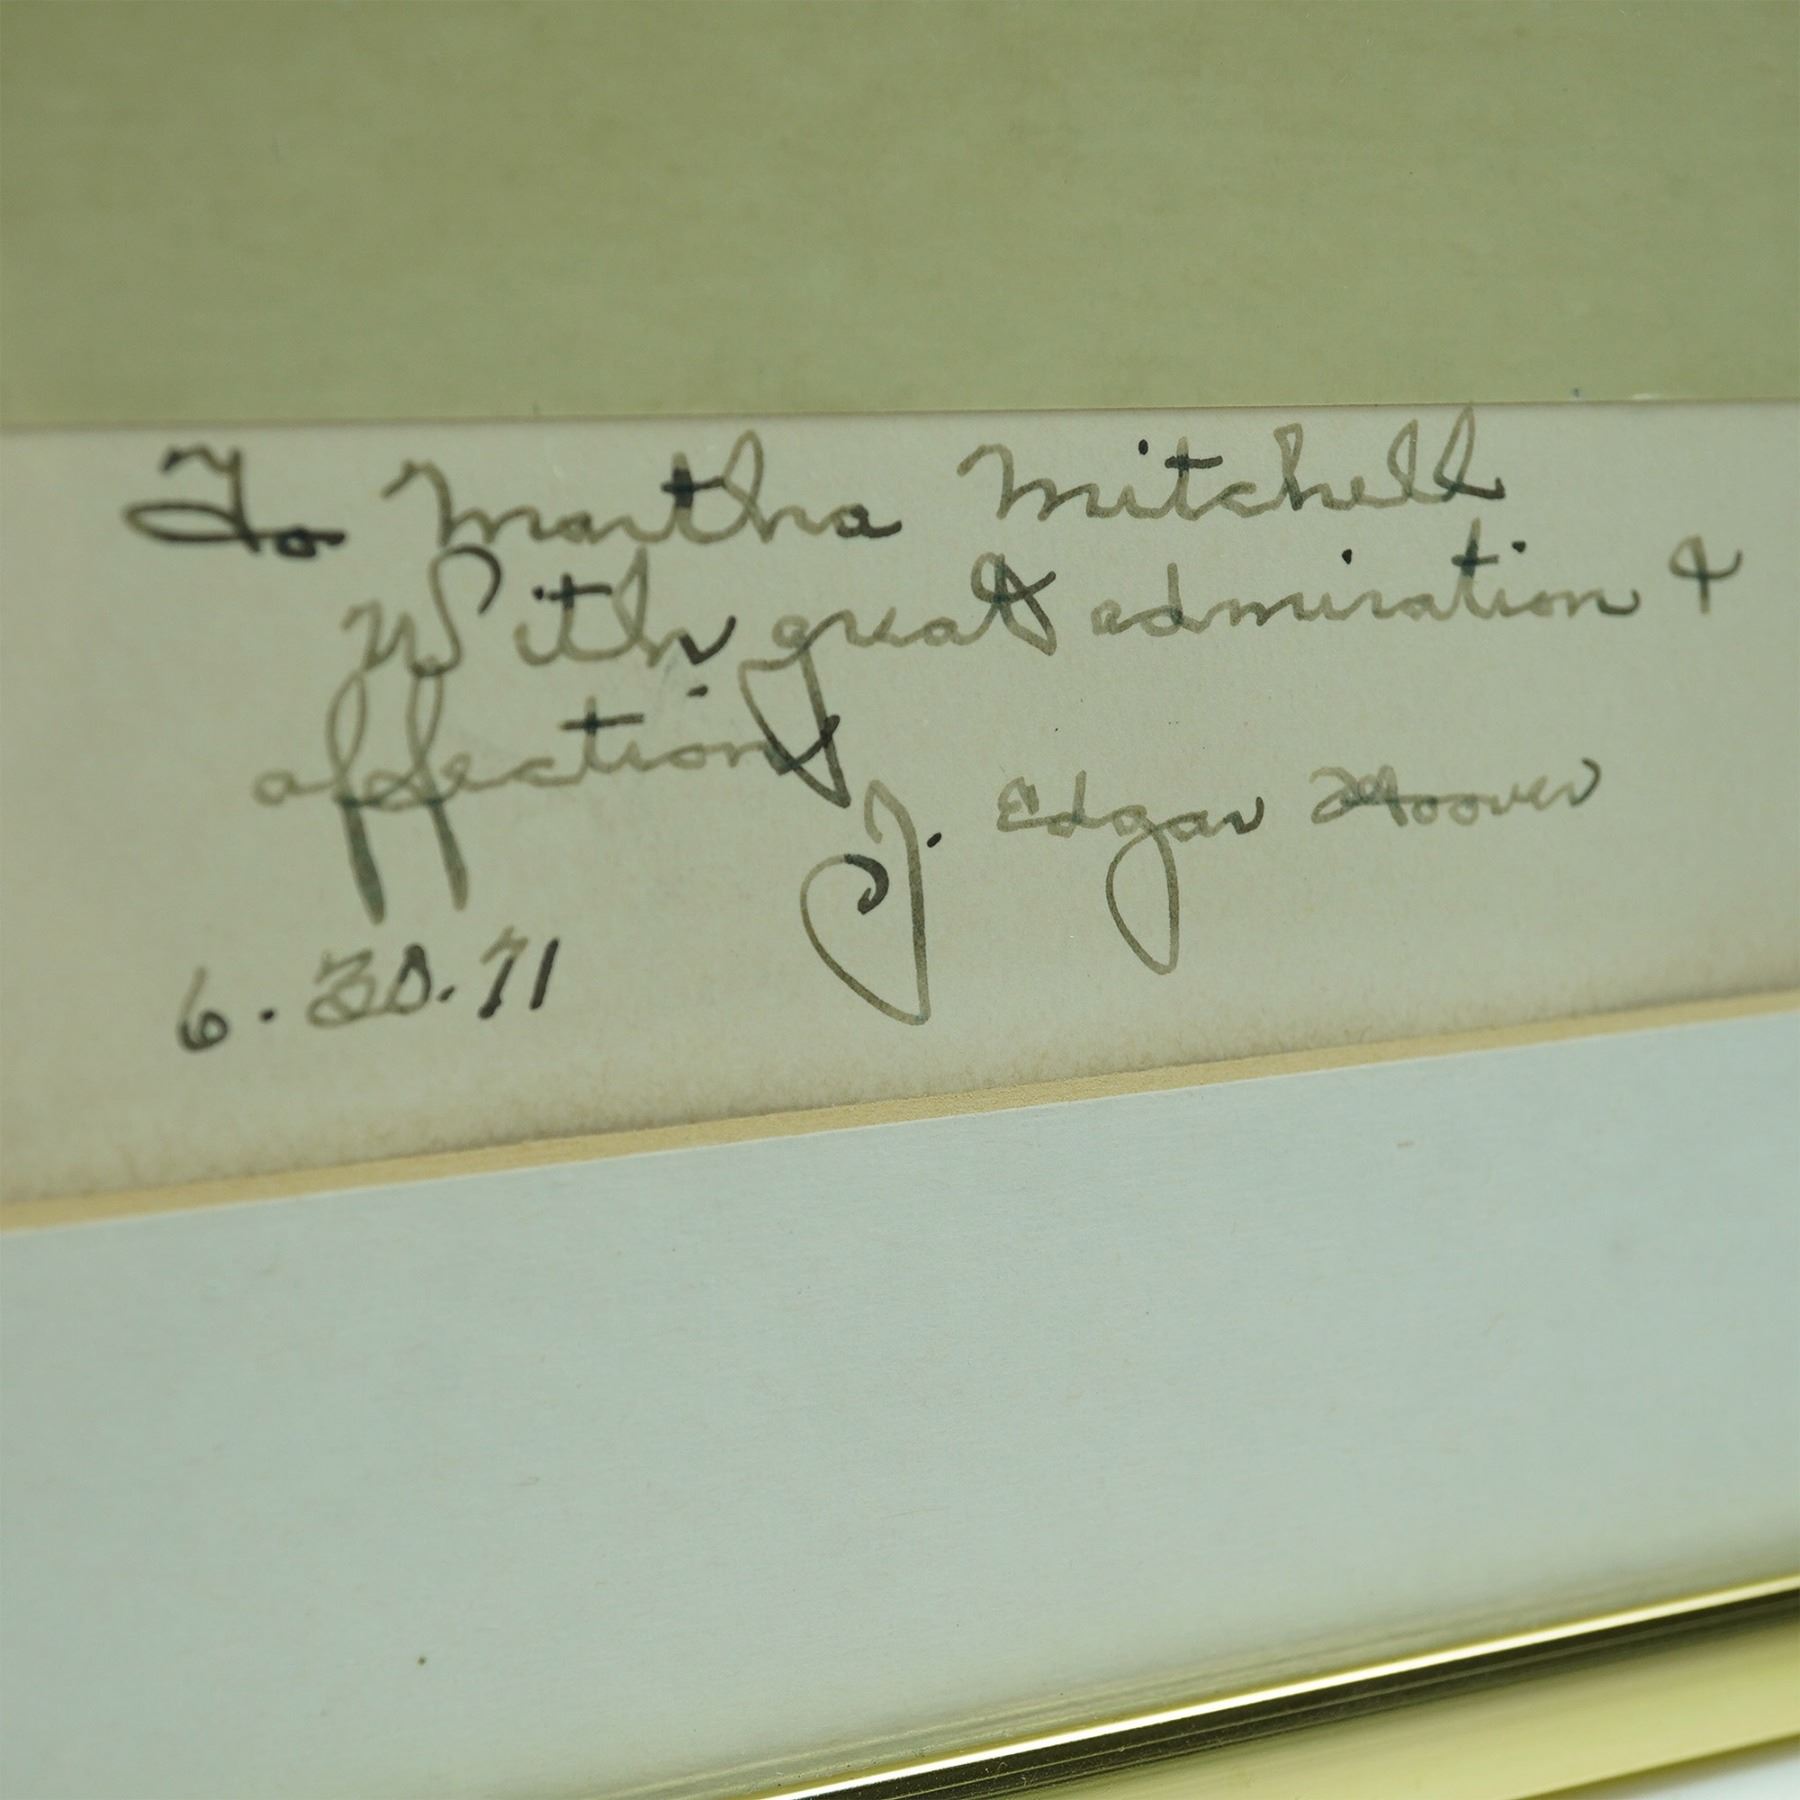 To Martha Mitchell
With great admiration &
affection
J. Edgar Hoover
6.30.71